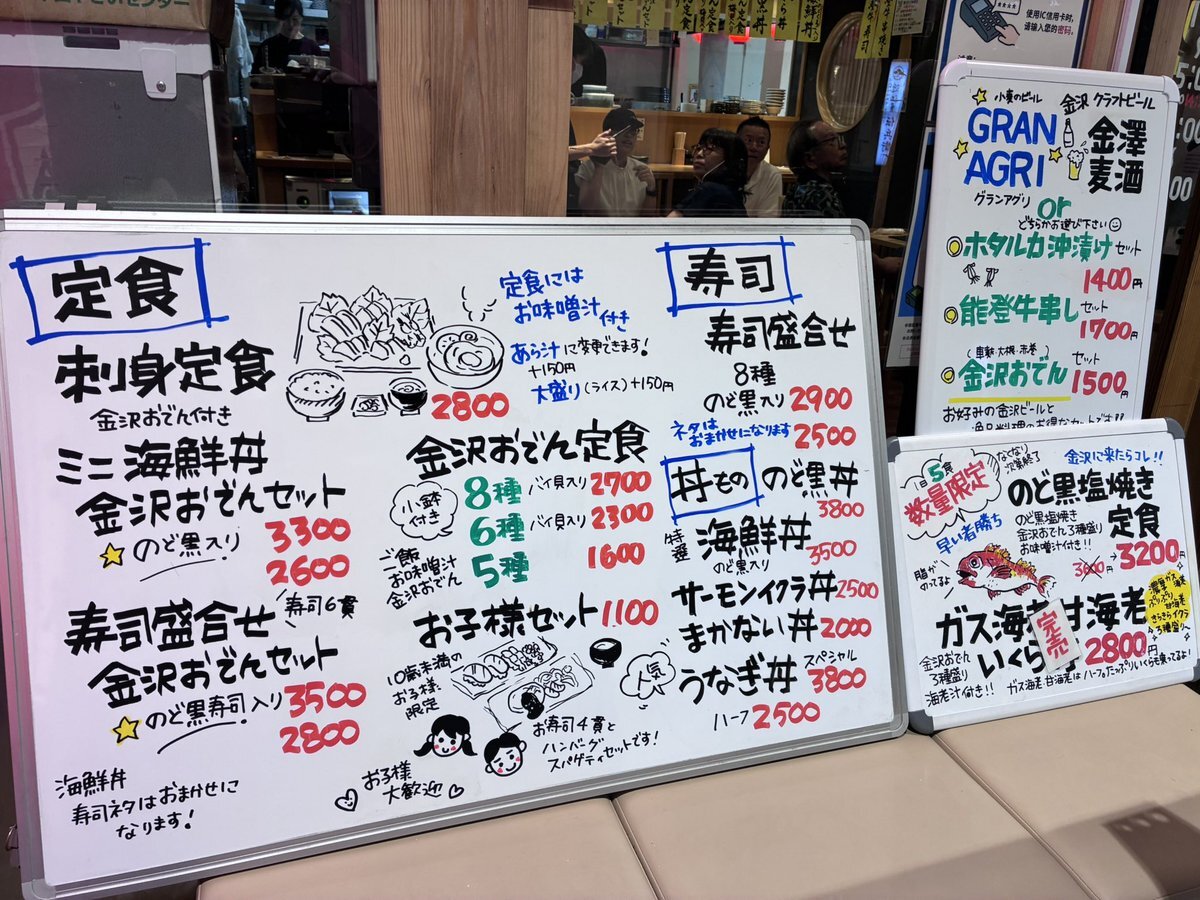 定食
刺身定食
金沢おでん付き
2800
定食には
お味噌汁付き
あら汁に変更できます!
+150円
大盛り(ライス)+150円
ミニ海鮮丼
金沢おでんセット
のど黒入り 3300
2600
寿司盛合せ 寿司6貫
金沢おでんセット
のど黒寿司入り 3500
2800
海鮮丼
寿司ネタはおまかせに
なります!
金沢おでん定食
小鉢付き
8種 バイ貝入り 2700
6種 バイ貝入り 2300
5種 1600
ご飯
お味噌汁
金沢おでん
お子様セット 1100
10歳未満の
お子様
限定
人気
お寿司4貫と
ハンバーグ
スパゲティセットです!
お子様
大歓迎
寿司
寿司盛合せ
8種
のど黒入り 2900
ネタは
おまかせになります 2500
丼もの
のど黒丼
3800
特選 海鮮丼
のど黒入り 3500
サーモンイクラ丼 2500
まかない丼 2000
うなぎ丼 スペシャル 3800
ハーフ 2500
小麦のビール
GRAN
AGRI
グランアグリ
金沢 クラフトビール
金澤
麦酒
or
どちらかお選び下さい
ホタルイカ沖漬け セット
1400円
能登牛串し セット
1700円
(車麩・大根・赤巻)
金沢おでん セット
1500円
お好みの金沢ビールと
1日5食
数量限定
なくなり
次第終了
早い者勝ち
脂が
のってるよ
金沢に来たらコレ!!
のど黒塩焼き
定食
のど黒塩焼き
金沢おでん3種盛り
お味噌汁付き!!
3600→3200円
ガス海老 甘海老
いくら
完売
2800円
濃厚ガス海老
ぷりぷり
甘海老
きらきらイクラ
3種盛り
金沢おでん
3種盛り
海老汁付き!!
ガス海老 甘海老はハーフ。たっぷりいくらも乗ってるよ!
使用IC信用卡时,
请输入您的密码。